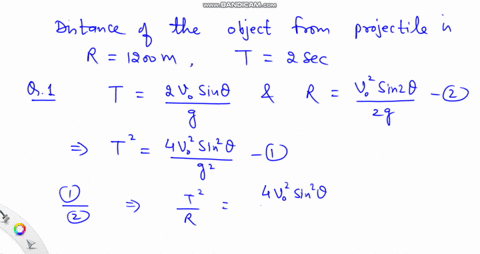 RECORDED WITH
BANDICAM.COM
Distance of the object from projectile is
R = 1200m , T = 2 Sec
Q.1 T = 2V₀ Sinθ / g & R = V₀² Sin2θ / 2g - ②
⇒ T² = 4V₀² Sin²θ / g² - ①
①/② ⇒ T²/R = 4V₀² sin²θ